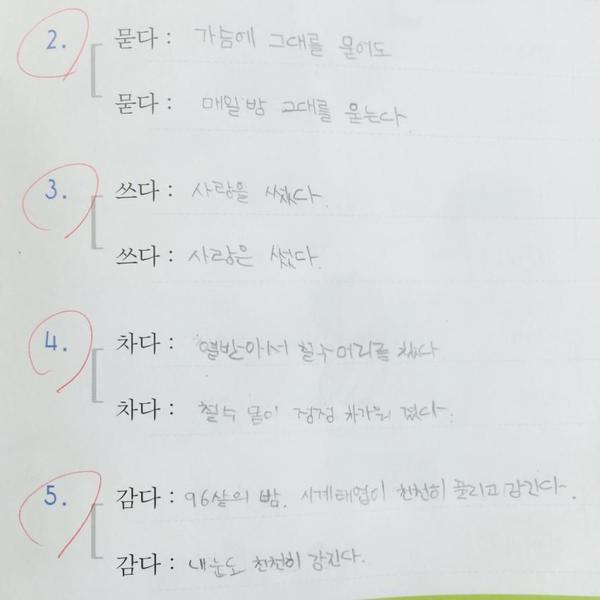 2. 묻다 : 가슴에 그대를 묻어도
묻다 : 매일 밤 그대를 묻는다
3. 쓰다 : 사랑을 썼다.
쓰다 : 사랑은 썼다.
4. 차다 : 열받아서 철수 머리를 찼다
차다 : 철수 몸이 점점 차가워 졌다.
5. 감다 : 96살의 밤. 시계태엽이 천천히 풀리고 감긴다.
감다 : 내 눈도 천천히 감긴다.